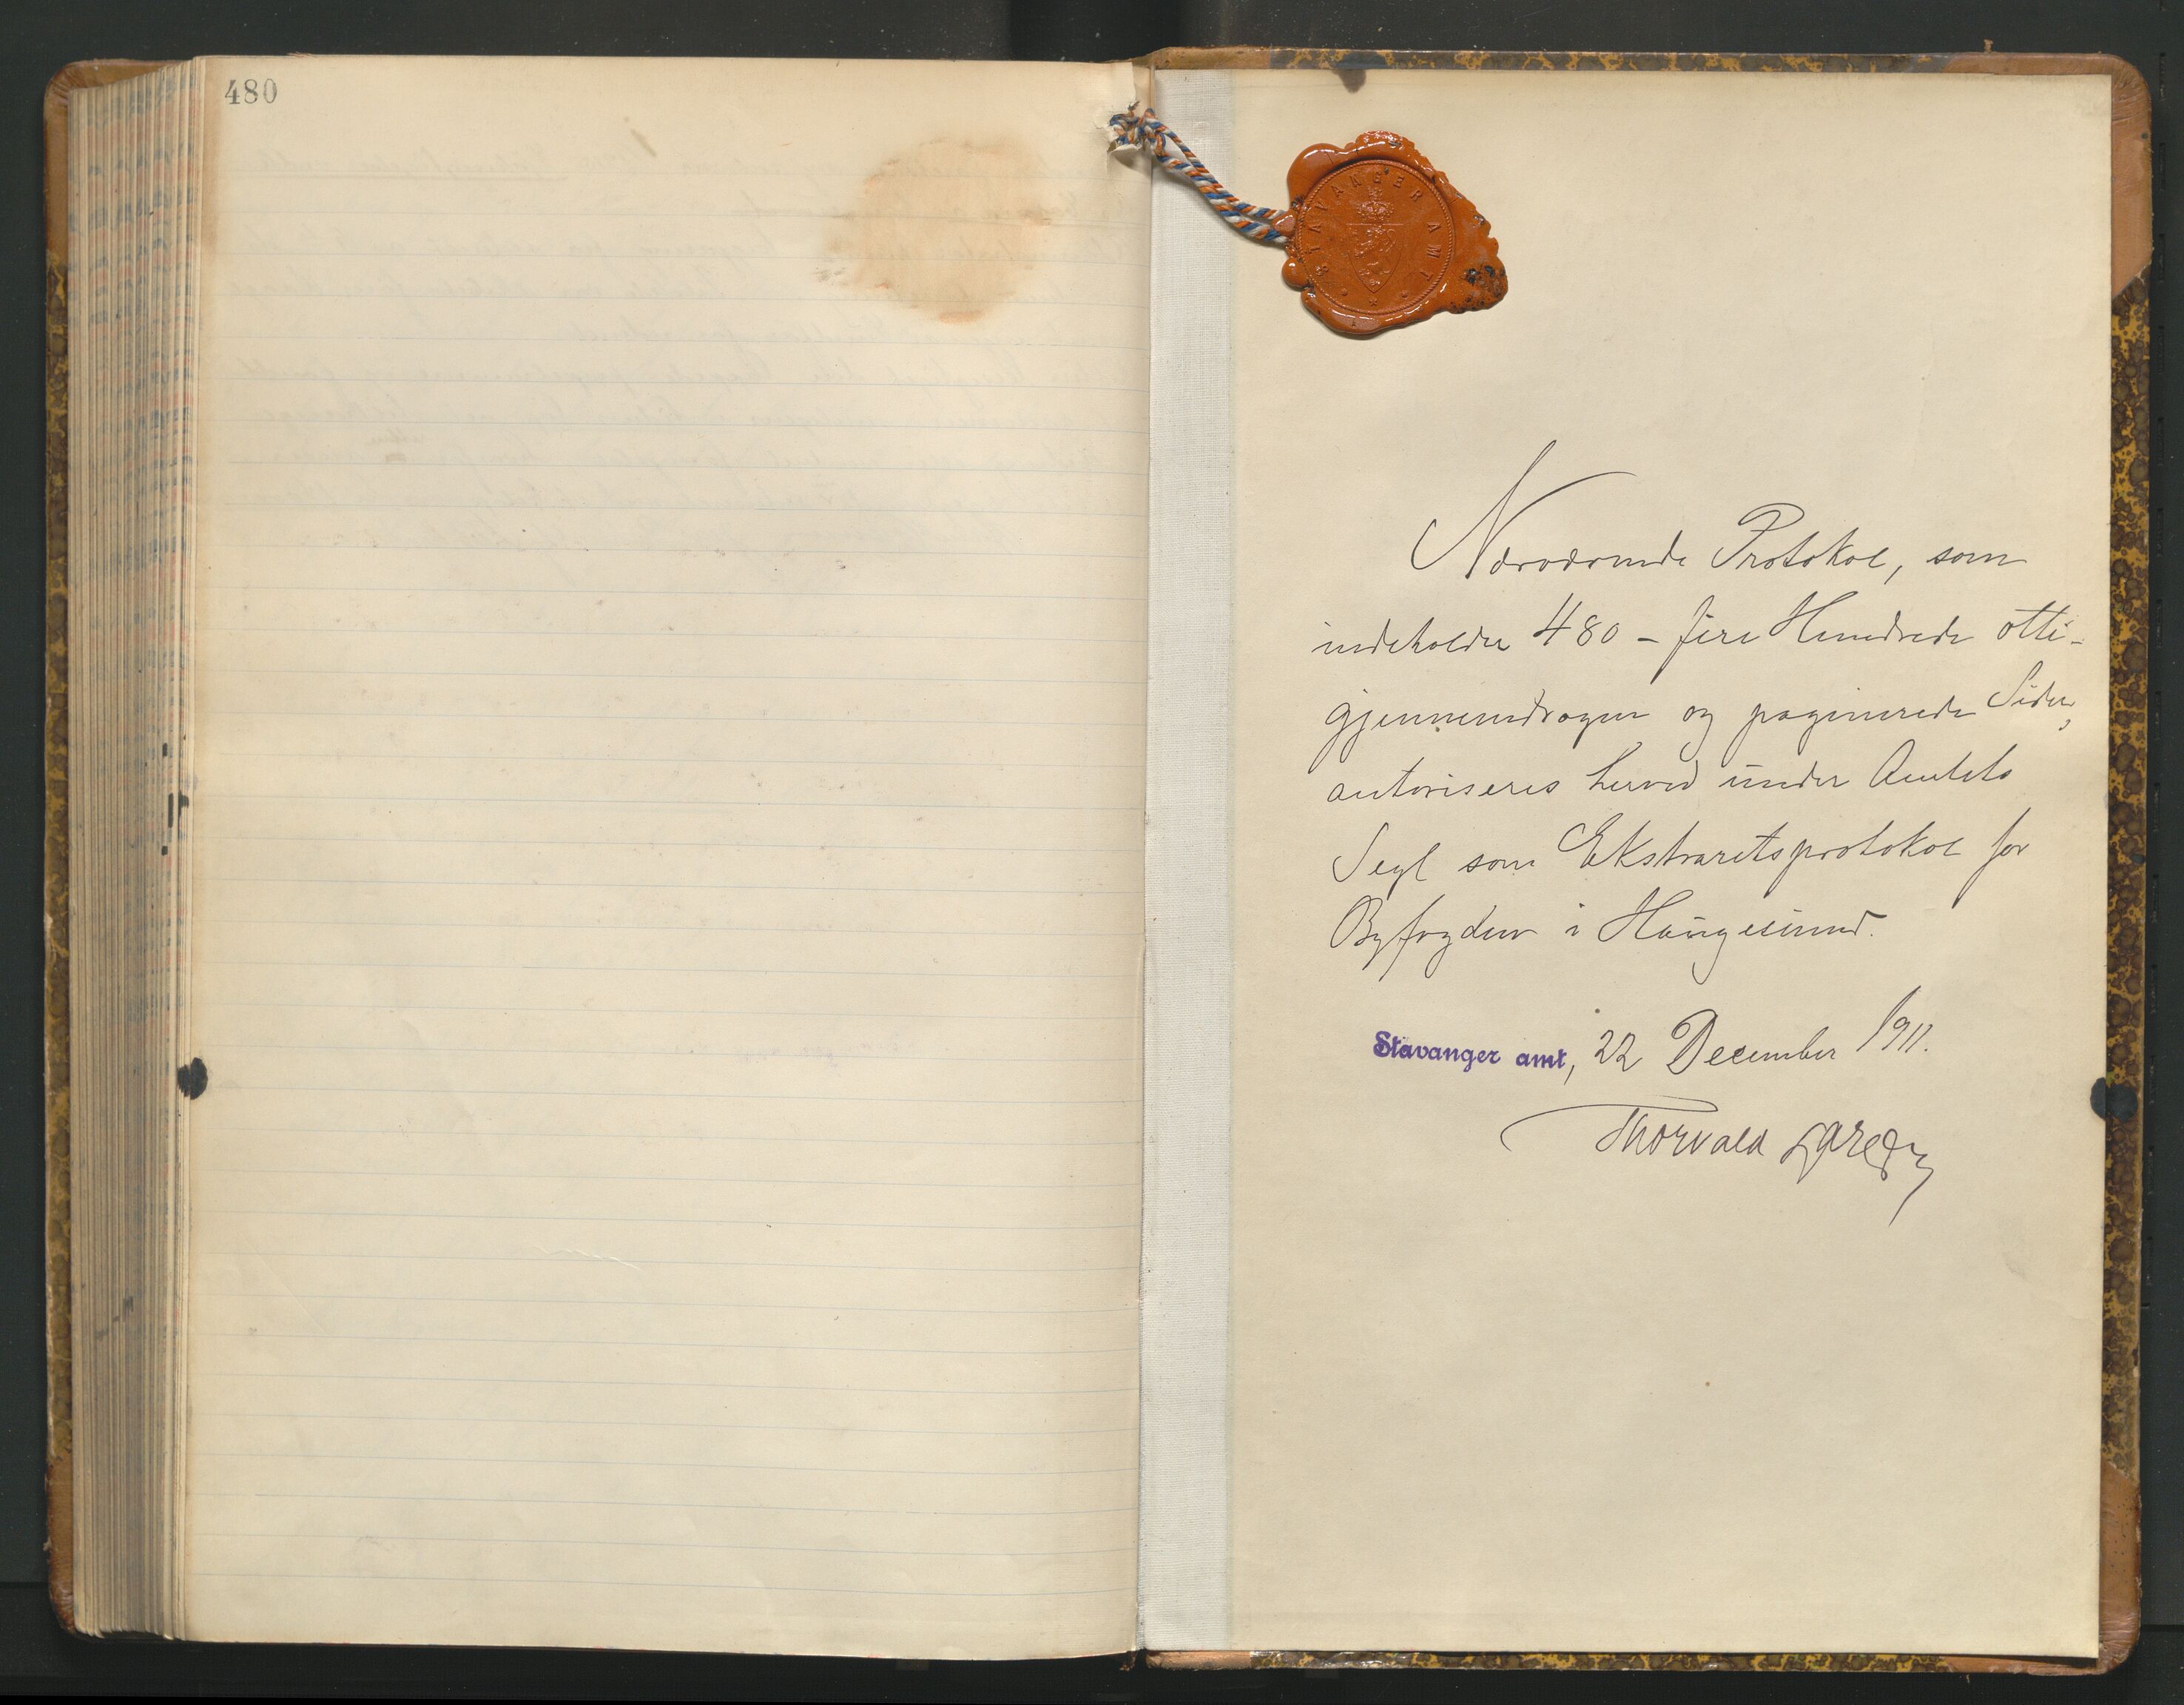 480
STAVANGER AMT
Nærværende Protokol, som
indeholder 480 - fire Hundrede otti -
gjennemdragne og paginerede Sider,
autoriseres herved under Amtets
Segl som Ekstraretsprotokol for
Byfogden i Haugesund.
Stavanger amt, 22 December 1911.
Thorvald